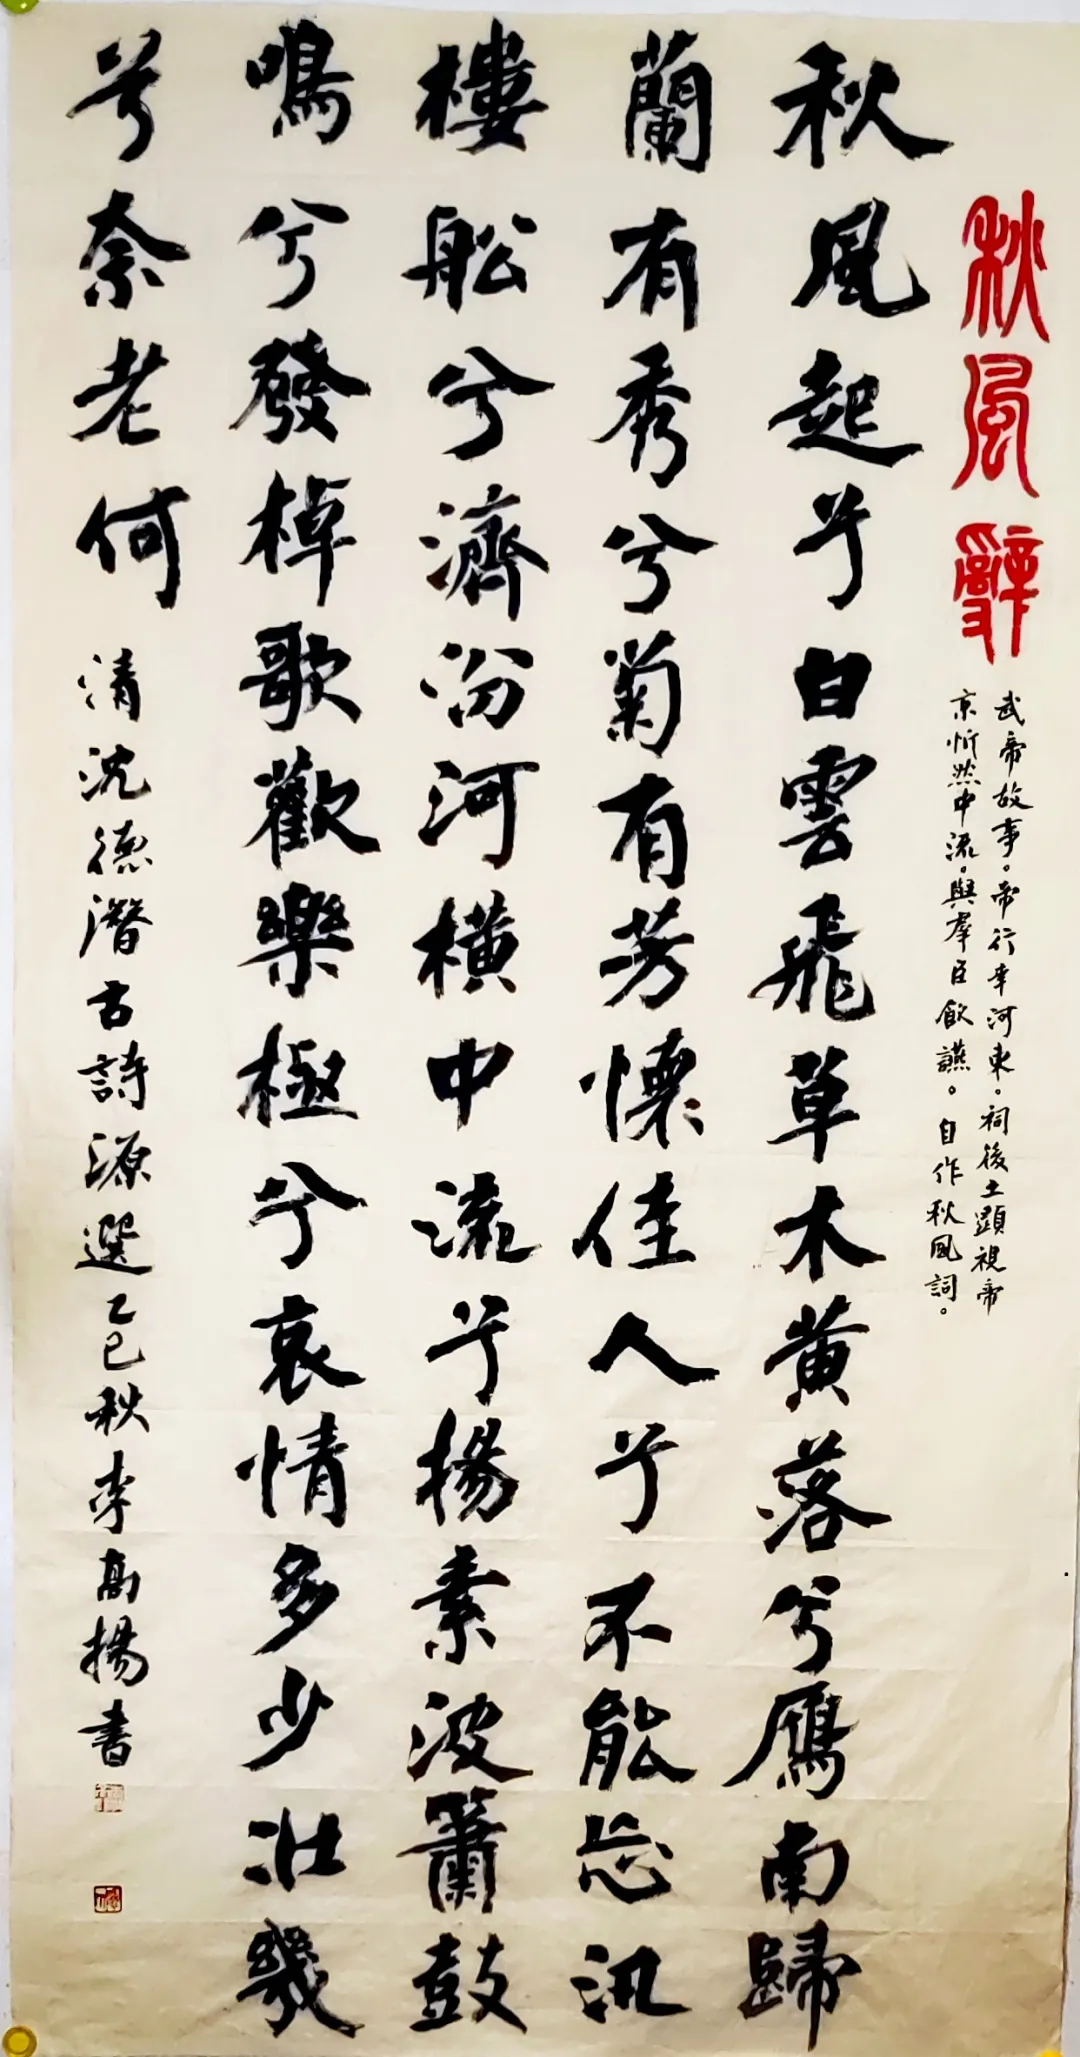 秋風辭
武帝故事。帝行幸河東。祠後土顯視帝
京忻然中流。與羣臣飲讌。自作秋風詞。
秋風起兮白雲飛草木黄落兮鴈南歸
蘭有秀兮菊有芳懷佳人兮不能忘汎
樓舩兮濟汾河橫中流兮揚素波簫鼓
鳴兮發棹歌歡樂極兮哀情多少壯幾
兮奈老何
清沈德潛古詩源選乙巳秋李高揚書